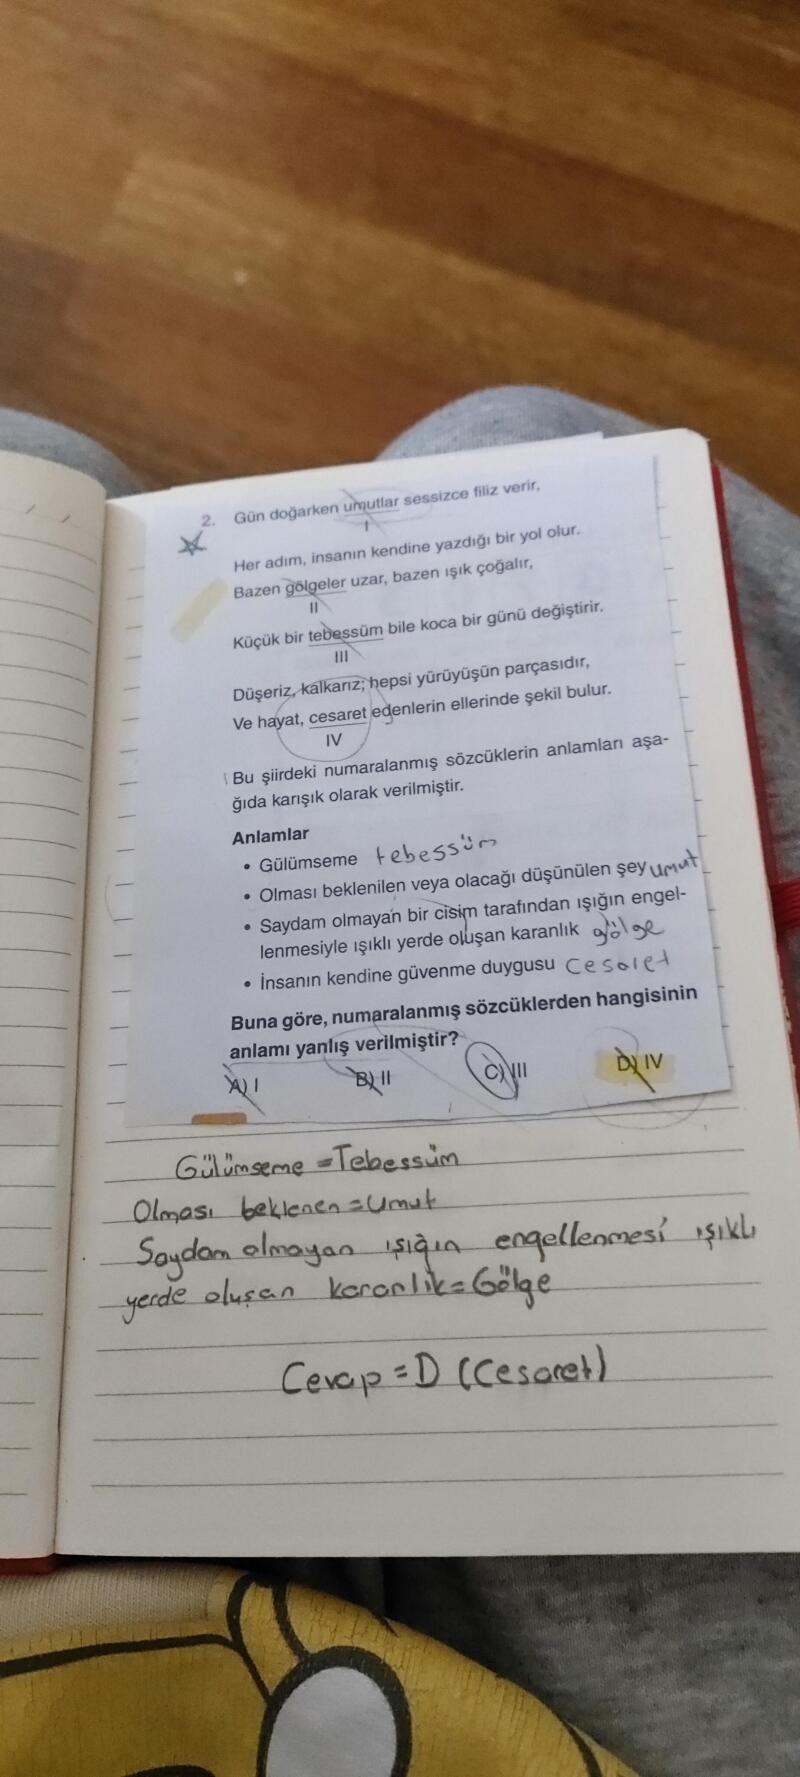 2. Gün doğarken umutlar sessizce filiz verir,
I
Her adım, insanın kendine yazdığı bir yol olur.
Bazen gölgeler uzar, bazen ışık çoğalır,
II
Küçük bir tebessüm bile koca bir günü değiştirir.
III
Düşeriz, kalkarız; hepsi yürüyüşün parçasıdır,
Ve hayat, cesaret edenlerin ellerinde şekil bulur.
IV
Bu şiirdeki numaralanmış sözcüklerin anlamları aşa-
ğıda karışık olarak verilmiştir.
Anlamlar
• Gülümseme tebessüm
• Olması beklenilen veya olacağı düşünülen şey umut
• Saydam olmayan bir cisim tarafından ışığın engel-
lenmesiyle ışıklı yerde oluşan karanlık gölge
• İnsanın kendine güvenme duygusu cesaret
Buna göre, numaralanmış sözcüklerden hangisinin
anlamı yanlış verilmiştir?
A) I B) II C) III D) IV
Gülümseme = Tebessüm
Olması beklenen = Umut
Saydam olmayan ışığın engellenmesi ışıklı
yerde oluşan karanlık = Gölge
Cevap = D (Cesaret)